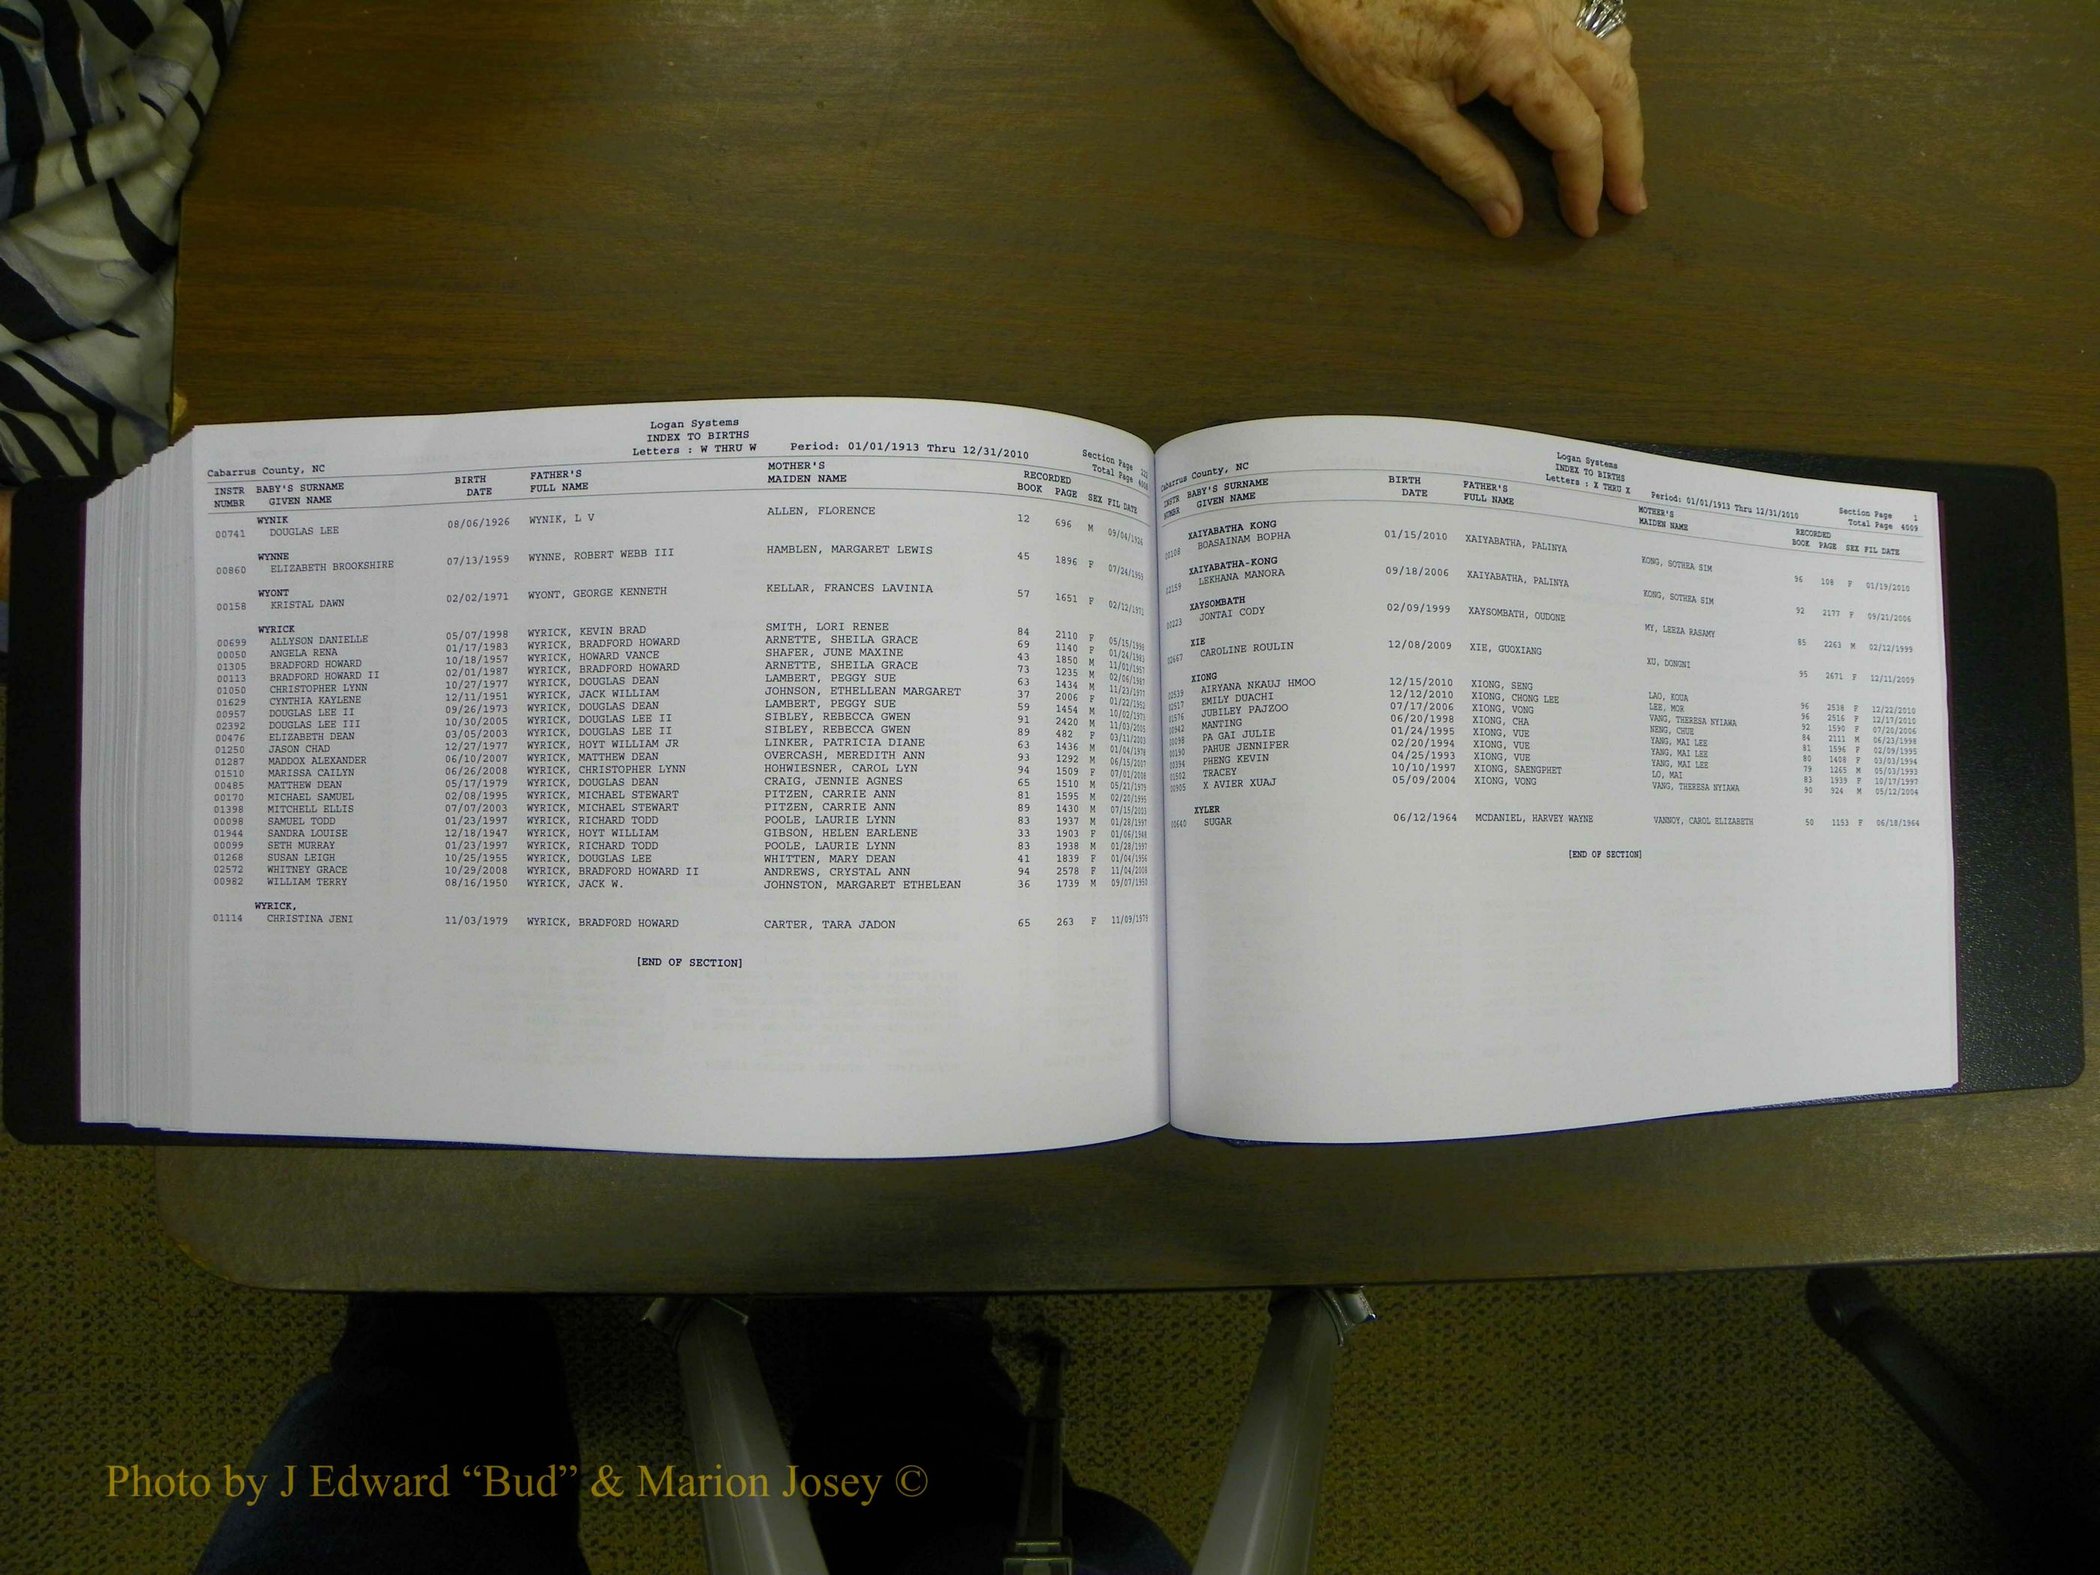 Logan Systems
INDEX TO BIRTHS
Letters : W THRU W Period: 01/01/1913 Thru 12/31/2010
Cabarrus County, NC Section Page
Total Page 4008
INSTR BABY'S SURNAME BIRTH FATHER'S MOTHER'S RECORDED
NUMBR GIVEN NAME DATE FULL NAME MAIDEN NAME BOOK PAGE SEX FIL DATE
WYNIK
00741 DOUGLAS LEE 08/06/1926 WYNIK, L V ALLEN, FLORENCE 12 696 M 09/04/1926
WYNNE
00860 ELIZABETH BROOKSHIRE 07/13/1959 WYNNE, ROBERT WEBB III HAMBLEN, MARGARET LEWIS 45 1896 F 07/24/1959
WYONT
00158 KRISTAL DAWN 02/02/1971 WYONT, GEORGE KENNETH KELLAR, FRANCES LAVINIA 57 1651 F 02/12/1971
WYRICK
00699 ALLYSON DANIELLE 05/07/1998 WYRICK, KEVIN BRAD SMITH, LORI RENEE 84 2110 F 05/15/1998
00050 ANGELA RENA 01/17/1983 WYRICK, BRADFORD HOWARD ARNETTE, SHEILA GRACE 69 1140 F 01/24/1983
01305 BRADFORD HOWARD 10/18/1957 WYRICK, HOWARD VANCE SHAFER, JUNE MAXINE 43 1850 M 11/01/1957
00113 BRADFORD HOWARD II 02/01/1987 WYRICK, BRADFORD HOWARD ARNETTE, SHEILA GRACE 73 1235 M 02/06/1987
01050 CHRISTOPHER LYNN 10/27/1977 WYRICK, DOUGLAS DEAN LAMBERT, PEGGY SUE 63 1434 M 11/23/1977
01629 CYNTHIA KAYLENE 12/11/1951 WYRICK, JACK WILLIAM JOHNSON, ETHELLEAN MARGARET 37 2006 F 01/22/1952
00957 DOUGLAS LEE II 09/26/1973 WYRICK, DOUGLAS DEAN LAMBERT, PEGGY SUE 59 1454 M 10/02/1973
02392 DOUGLAS LEE III 10/30/2005 WYRICK, DOUGLAS LEE II SIBLEY, REBECCA GWEN 91 2420 M 11/03/2005
00476 ELIZABETH DEAN 03/05/2003 WYRICK, DOUGLAS LEE II SIBLEY, REBECCA GWEN 89 482 F 03/11/2003
01250 JASON CHAD 12/27/1977 WYRICK, HOYT WILLIAM JR LINKER, PATRICIA DIANE 63 1436 M 01/04/1978
01287 MADDOX ALEXANDER 06/10/2007 WYRICK, MATTHEW DEAN OVERCASH, MEREDITH ANN 93 1292 M 06/15/2007
01510 MARISSA CAILYN 06/26/2008 WYRICK, CHRISTOPHER LYNN HOHWIESNER, CAROL LYN 94 1509 F 07/01/2008
00485 MATTHEW DEAN 05/17/1979 WYRICK, DOUGLAS DEAN CRAIG, JENNIE AGNES 65 1510 M 05/21/1979
00170 MICHAEL SAMUEL 02/08/1995 WYRICK, MICHAEL STEWART PITZEN, CARRIE ANN 81 1595 M 02/20/1995
01398 MITCHELL ELLIS 07/07/2003 WYRICK, MICHAEL STEWART PITZEN, CARRIE ANN 89 1430 M 07/15/2003
00098 SAMUEL TODD 01/23/1997 WYRICK, RICHARD TODD POOLE, LAURIE LYNN 83 1937 M 01/28/1997
01944 SANDRA LOUISE 12/18/1947 WYRICK, HOYT WILLIAM GIBSON, HELEN EARLENE 33 1903 F 01/06/1948
00099 SETH MURRAY 01/23/1997 WYRICK, RICHARD TODD POOLE, LAURIE LYNN 83 1938 M 01/28/1997
01268 SUSAN LEIGH 10/25/1955 WYRICK, DOUGLAS LEE WHITTEN, MARY DEAN 41 1839 F 01/04/1956
02572 WHITNEY GRACE 10/29/2008 WYRICK, BRADFORD HOWARD II ANDREWS, CRYSTAL ANN 94 2578 F 11/04/2008
00982 WILLIAM TERRY 08/16/1950 WYRICK, JACK W. JOHNSTON, MARGARET ETHELEAN 36 1739 M 09/07/1950
WYRICK,
01114 CHRISTINA JENI 11/03/1979 WYRICK, BRADFORD HOWARD CARTER, TARA JADON 65 263 F 11/09/1979
[END OF SECTION]
Logan Systems
INDEX TO BIRTHS
Letters : X THRU X Period: 01/01/1913 Thru 12/31/2010
Cabarrus County, NC Section Page 1
Total Page 4009
INSTR BABY'S SURNAME BIRTH FATHER'S MOTHER'S RECORDED
NUMBR GIVEN NAME DATE FULL NAME MAIDEN NAME BOOK PAGE SEX FIL DATE
XAIYABATHA KONG
00108 BOASAINAM BOPHA 01/15/2010 XAIYABATHA, PALINYA KONG, SOTHEA SIM 96 108 F 01/19/2010
XAIYABATHA-KONG
02159 LEKHANA MANORA 09/18/2006 XAIYABATHA, PALINYA KONG, SOTHEA SIM 92 2177 F 09/21/2006
XAYSOMBATH
00223 JONTAI CODY 02/09/1999 XAYSOMBATH, OUDONE MY, LEEZA RASAMY 85 2263 M 02/12/1999
XIE
02667 CAROLINE ROULIN 12/08/2009 XIE, GUOXIANG XU, DONGNI 95 2671 F 12/11/2009
XIONG
02539 AIRYANA NKAUJ HMOO 12/15/2010 XIONG, SENG LAO, KOUA 96 2538 F 12/22/2010
02517 EMILY DUACHI 12/12/2010 XIONG, CHONG LEE LEE, MOR 96 2516 F 12/17/2010
01576 JUBILEY PAJZOO 07/17/2006 XIONG, VONG VANG, THERESA NYIAWA 92 1590 F 07/20/2006
00942 MANTING 06/20/1998 XIONG, CHA NENG, CHUE 84 2111 M 06/23/1998
00098 PA GAI JULIE 01/24/1995 XIONG, VUE YANG, MAI LEE 81 1596 F 02/09/1995
00190 PAHUE JENNIFER 02/20/1994 XIONG, VUE YANG, MAI LEE 80 1408 F 03/03/1994
00394 PHENG KEVIN 04/25/1993 XIONG, VUE YANG, MAI LEE 79 1265 M 05/03/1993
01502 TRACEY 10/10/1997 XIONG, SAENGPHET LO, MAI 83 1939 F 10/17/1997
00905 X AVIER XUAJ 05/09/2004 XIONG, VONG VANG, THERESA NYIAWA 90 924 M 05/12/2004
XYLER
00640 SUGAR 06/12/1964 MCDANIEL, HARVEY WAYNE VANNOY, CAROL ELIZABETH 50 1153 F 06/18/1964
[END OF SECTION]
Photo by J Edward “Bud” & Marion Josey ©